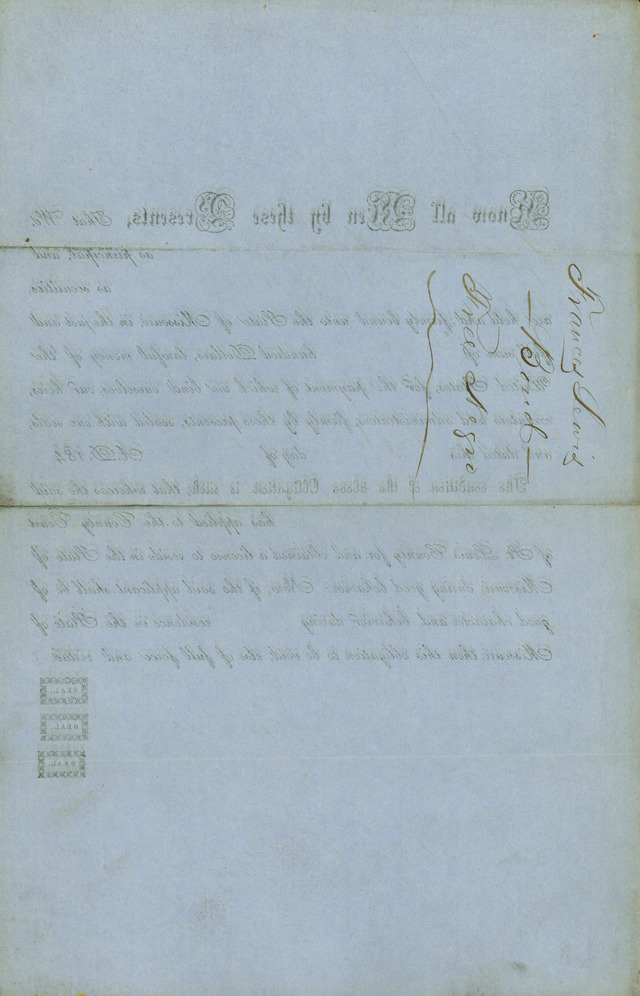 Francis Lewis
Bond
Know all Men by these Presents, That We
as principal, and
as securities
are held and firmly bound unto the State of Missouri in the just and
sum of hundred Dollars, lawful money of the
United States, for the payment of which we bind ourselves, our heirs,
executors and administrators, firmly by these presents, sealed with our seals,
and dated this day of A. D. 184
The condition of the above Obligation is such, that whereas the said
has applied to the County Court
of St. Louis County for and obtained a license to reside in the State of
Missouri, during good behavior: Now, if the said applicant shall be of
good character and behavior during residence in the State of
Missouri, then this obligation to be void, else of full force and virtue.
SEAL.
SEAL.
SEAL.